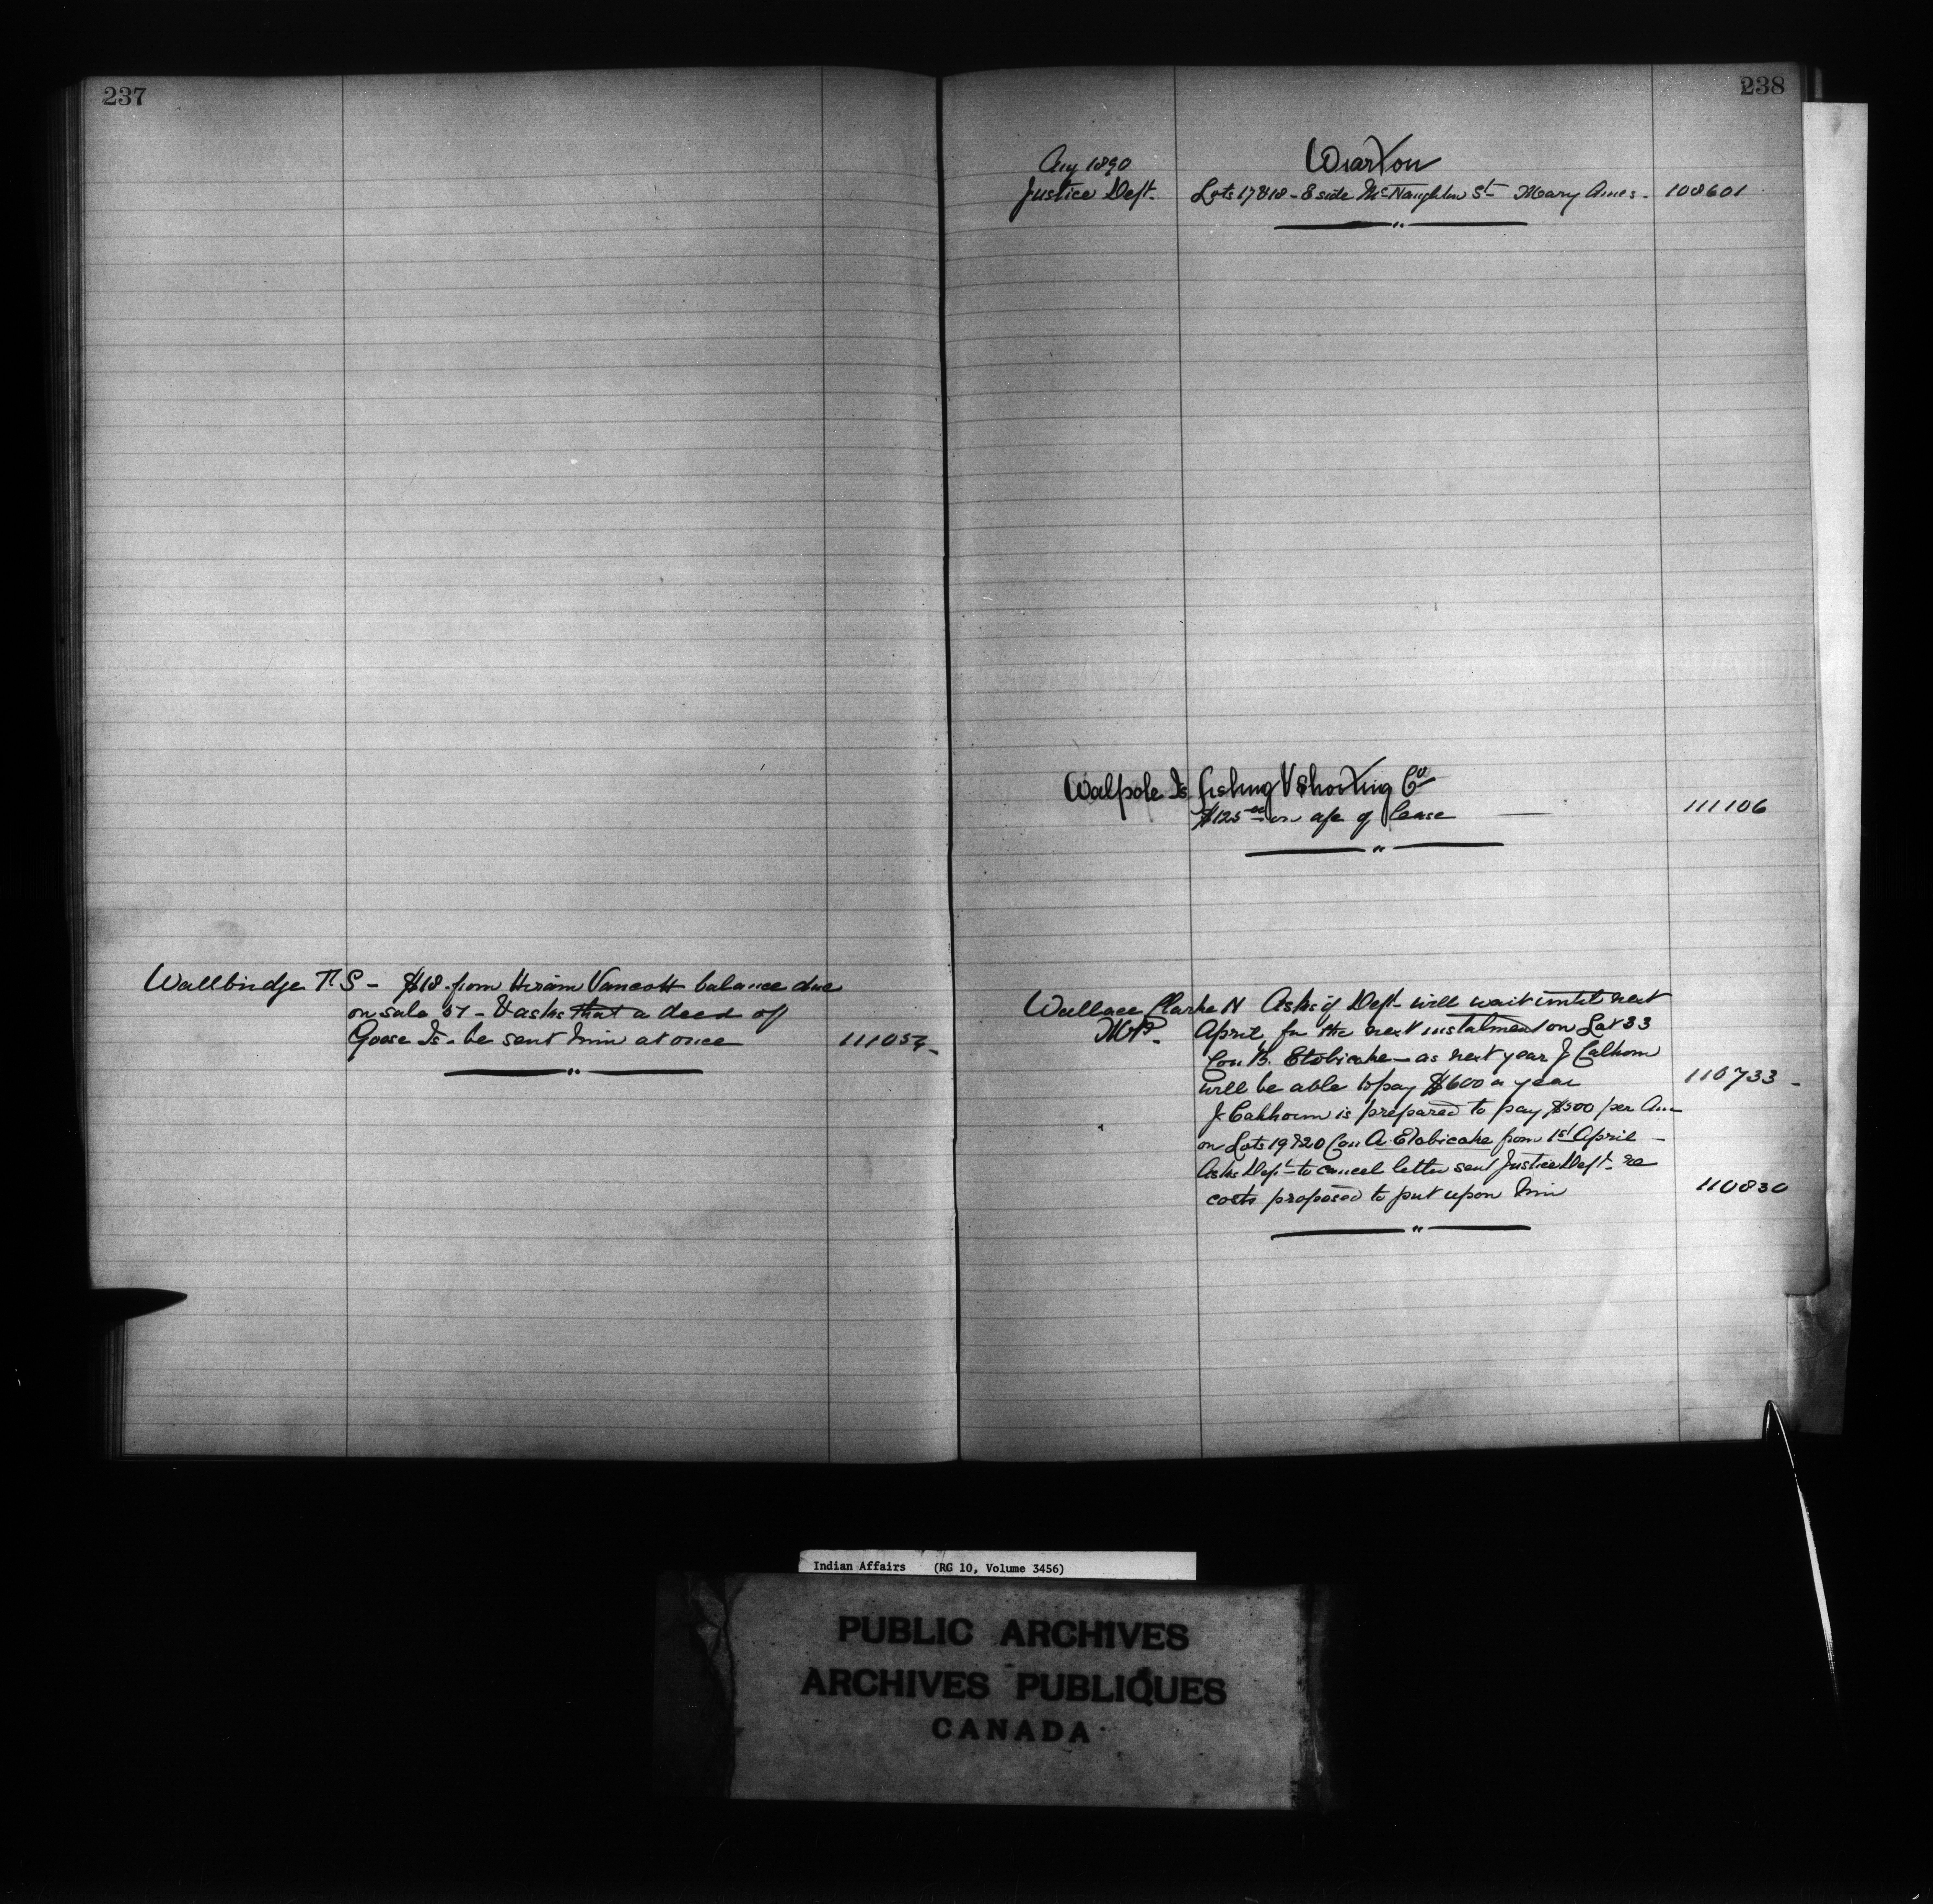 237
Wallbridge T. S - $18. from Hiram Vancott balance due
on sale 57 - & asks that a deed of
Goose Is - be sent him at once 111054 -
238
Wiarton
Aug 1890
Justice Dept. Lots 17 & 18 - E side McNaughton St - Mary Ames - 108601
Walpole Is fishing & Shooting Co
$125 00 on a/c of lease 111106
Wallace Clarke N Asks if Dept will wait until next
M.P. April for the next instalment on Lot 33
Con B. Etobicoke - as next year J Calhoun
will be able to pay $600 a year 110733 -
J Calhoun is prepared to pay $500 per Ann
on Lots 19 & 20 Con A. Etobicoke from 1st April -
Asks Dept - to cancel letter sent Justice Dept. re
costs proposed to put upon him 110830
Indian Affairs (RG 10, Volume 3456)
PUBLIC ARCHIVES
ARCHIVES PUBLIQUES
CANADA